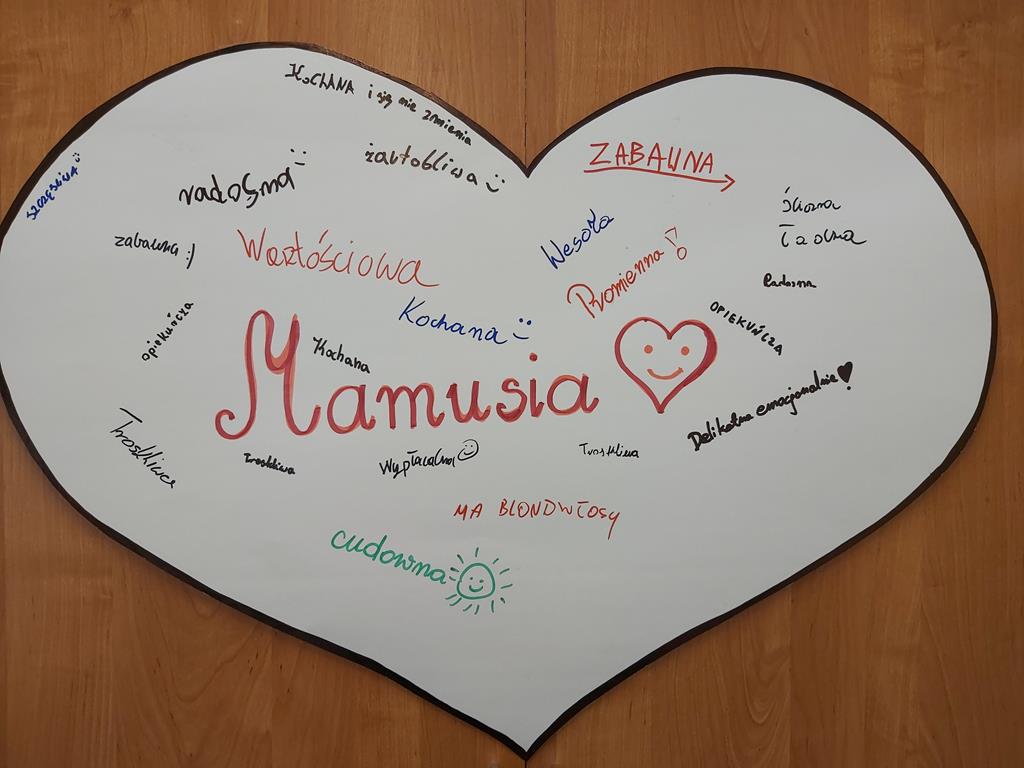 KOCHANA i się nie zmienia
żartobliwa
ZABAWNA
SZCZĘŚLIWA
radosna
Śliczna
Ładna
zabawna :)
Wartościowa
Wesoła
Promienna!
Radosna
Kochana
OPIEKUŃCZA
OPIEKUŃCZA
Kochana
Mamusia
Delikatna emocjonalnie
Troskliwa
Troskliwa
Wypłacalna
Troskliwa
MA BLOND WŁOSY
cudowna